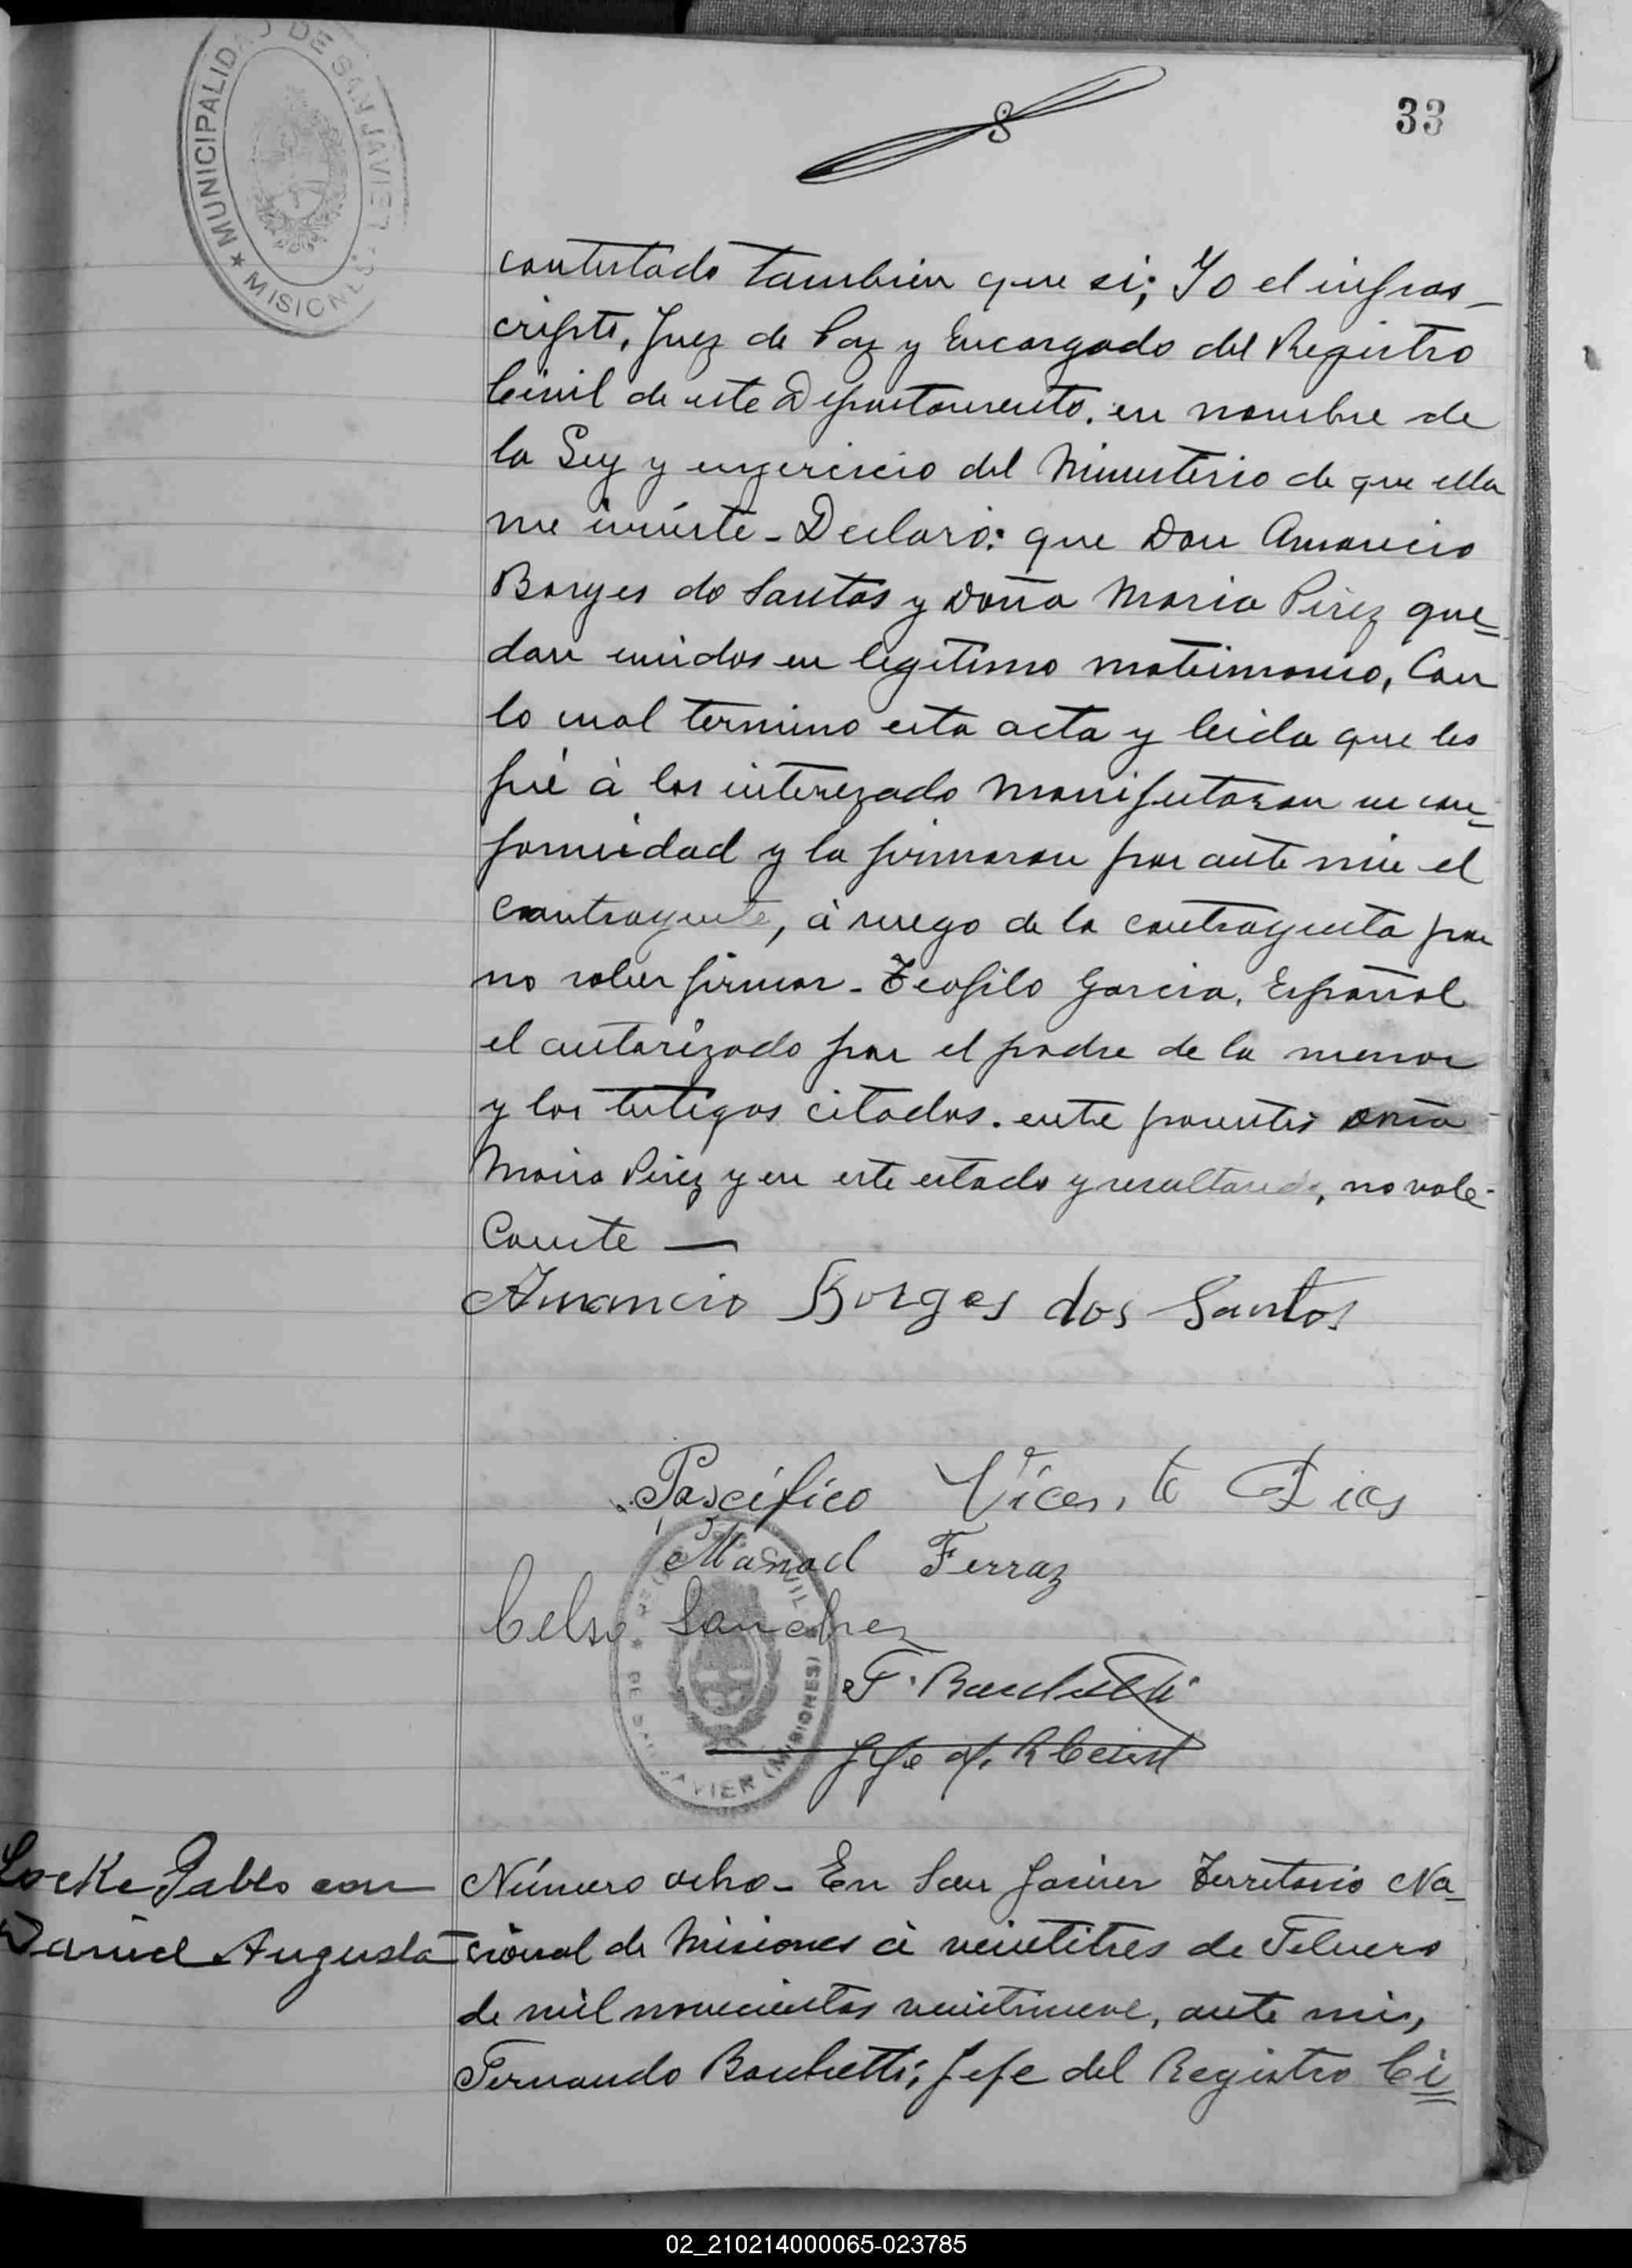 MUNICIPALIDAD DE SAN JAVIER
★ MISIONES
33
contestado tambien que si; Yo el infras-
cripto, Juez de Paz y Encargado del Registro
Civil de este Departamento. en nombre de
la Ley y engercicio del Ministerio de que ella
me inviste - Declaro: que Don Amancio
Borges do Santos y Doña Maria Pérez que=
dan unidos en legitimo matrimonio, Con
lo cual termino esta acta y leida que les
fué à los interezado manifestaron su con=
formidad y la firmaron por ante mi el
contrayente, à ruego de la contrayenta por
no saber firmar - Teofilo Garcia, Español
el autorizado por el padre de la menor
y los testigos citados. entre parentis Doña
Maria Pérez y en este estado y resultando, no vale-
Conste —
Amancio Borges dos Santos
Pascifico Vicente Dias
Manoel Ferraz
Celso Sanchez
F. Bacchetti
Jefe of. R Civil
CIVIL
★ DE SAN JAVIER (MISIONES)
Locke Pablo con
Daniel Augusta
Número ocho - En San Javier Territorio Na=
cional de Misiones à veintitres de Febrero
de mil novecientos veintinueve, ante mi,
Fernando Bacchetti; Jefe del Registro Ci
02_210214000065-023785